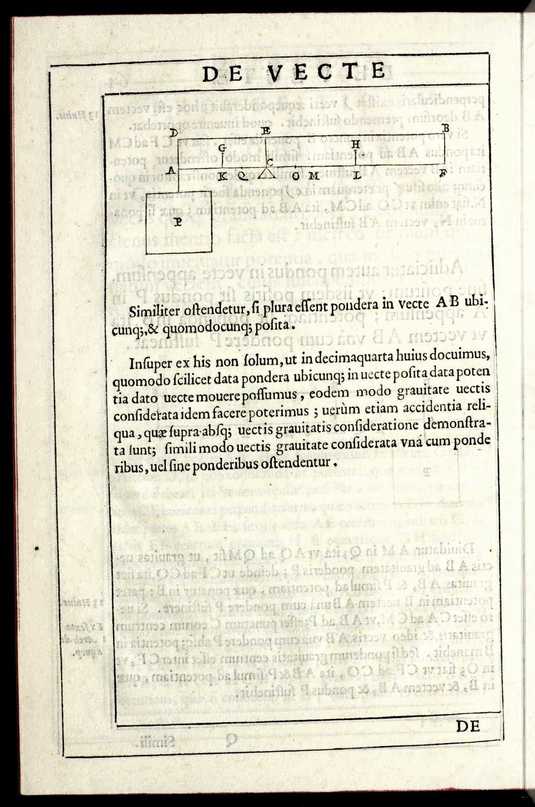 DE VECTE
D E B
G H
A K Q C O M L F
P
Similiter ostendetur, si plura essent pondera in vecte AB ubi-
cunq;, & quomodocunq; posita.
Insuper ex his non solum, ut in decimaquarta huius docuimus,
quomodo scilicet data pondera ubicunq; in uecte posita data poten
tia dato uecte mouere possumus, eodem modo grauitate uectis
considerata idem facere poterimus; uerùm etiam accidentia reli-
qua, quæ supra absq; uectis grauitatis consideratione demonstra-
ta sunt; simili modo uectis grauitate considerata vnà cum ponde
ribus, uel sine ponderibus ostendentur.
DE